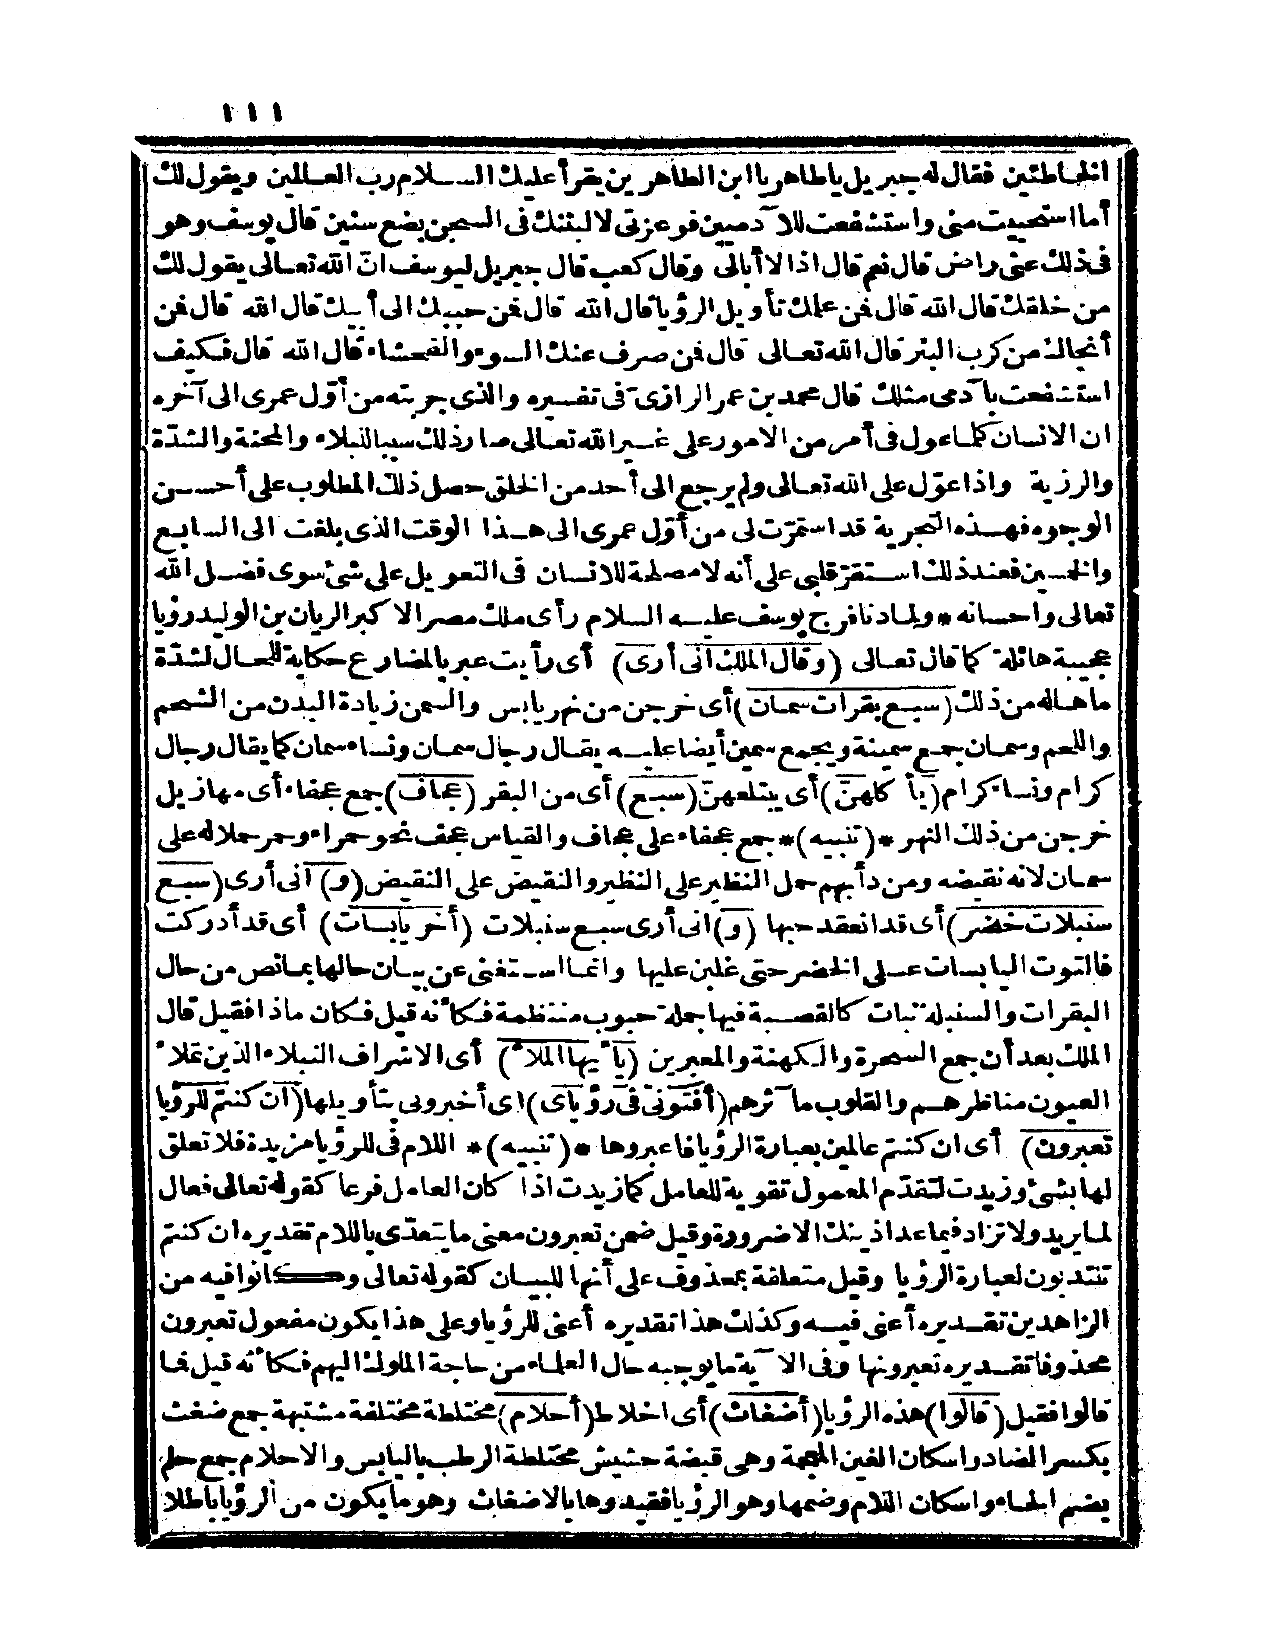 ١١١
الخاطئين فقال له جبريل يا طاهر يا ابن الطاهرين يقرأ عليك الســلام رب العـالمين ويقول لك
أما استحييت منى واستشفعت للآدميين فوعزتى لالبثنك فى السجن بضع سنين قال يوسف وهو
فى ذلك عنى راض قال نعم قال اذا لا أبالى وقال كعب قال جبريل ليوسف انّ الله تعالى يقول لك
من خلقك قال الله قال فمن علمك تأويل الرؤيا قال الله قال فمن حببك الى أبيك قال الله قال فمن
أنجاك من كرب البئر قال الله تعالى قال فمن صرف عنك السوء والفحشاء قال الله قال فكيف
استشفعت بآدمى مثلك قال محمد بن عمر الرازى فى تفسيره والذى جربته من أوّل عمرى الى آخره
ان الانسان كلما عول فى أمر من الامور على غير الله تعالى صار ذلك سببا للبلاء والمحنة والشدّة
والرزية واذا عوّل على الله تعالى ولم يرجع الى أحد من الخلق حصل ذلك المطلوب على أحسن
الوجوه فهذه التجربة قد استمرّت لى من أوّل عمرى الى هذا الوقت الذى بلغت الى السابع
والخمسين فعند ذلك استقرّ قلبى على أنه لا مصلحة للانسان فى التعويل على شئ سوى فضل الله
تعالى واحسانه * ولما دنا فرج يوسف عليه السلام رأى ملك مصر الاكبر الريان بن الوليد رؤيا
عجيبة هائلة كما قال تعالى (وقال الملك انى أرى) أى رأيت عبر بالمضارع حكاية للحال لشدّة
ما هاله من ذلك (سبع بقرات سمان) أى خرجن من نهر يابس والسمن زيادة البدن من الشحم
واللحم وسمان جمع سمينة ويجمع سمين أيضا عليه يقال رجال سمان ونساء سمان كما يقال رجال
كرام ونساء كرام (يأكلهنّ) أى يبتلعهنّ (سبع) أى من البقر (عجاف) جمع عجفاء أى مهازيل
خرجن من ذلك النهر * (تنبيه) * جمع عجفاء على عجاف والقياس عجف نحو حمراء وحمر حملا له على
سمان لانه نقيضه ومن دأبهم حمل النظير على النظير والنقيض على النقيض (و) انى أرى (سبع
سنبلات خضر) أى قد انعقد حبها (و) انى أرى سبع سنبلات (أخر يابسات) أى قد أدركت
فالتوت اليابسات على الخضر حتى غلبن عليها وانما استغنى عن بيان حالها بما نص من حال
البقرات والسنبلة نبات كالقصبة فيها جملة حبوب منتظمة فكأنه قيل فكان ماذا فقيل قال
الملك بعد أن جمع السحرة والكهنة والمعبرين (يأيها الملأ) أى الاشراف النبلاء الذين تملأ
العيون مناظرهم والقلوب مآثرهم (أفتونى فى رؤياى) اى أخبرونى بتأويلها (ان كنتم للرؤيا
تعبرون) أى ان كنتم عالمين بعبارة الرؤيا فاعبروها * (تنبيه) * اللام فى للرؤيا مزيدة فلا تعلق
لها بشئ وزيدت لتقدّم المعمول تقوية للعامل كما زيدت اذا كان العامل فرعا كقوله تعالى فعال
لما يريد ولا تزاد فيما عدا ذينك الا ضرورة وقيل ضمن تعبرون معنى ما يتعدّى باللام تقديره ان كنتم
تنتدبون لعبارة الرؤيا وقيل متعلقة بمحذوف على أنها للبيان كقوله تعالى وكانوا فيه من
الزاهدين تقديره أعنى فيه وكذلك هذا تقديره أعنى للرؤيا وعلى هذا يكون مفعول تعبرون
محذوفا تقديره تعبرونها وفى الآية ما يوجبه حال العلماء من حاجة الملوك اليهم فكأنه قيل فما
قالوا فقيل (قالوا) هذه الرؤيا (أضغاث) أى اخلاط (أحلام) مختلطة مختلفة مشتبهة جمع ضغث
بكسر الضاد واسكان الغين المعجمة وهى قبضة حشيش مختلطة الرطب باليابس والاحلام جمع حلم
بضم الحاء واسكان اللام وضمها وهو الرؤيا فقيدوها بالاضغاث وهو ما يكون من الرؤيا باطلا